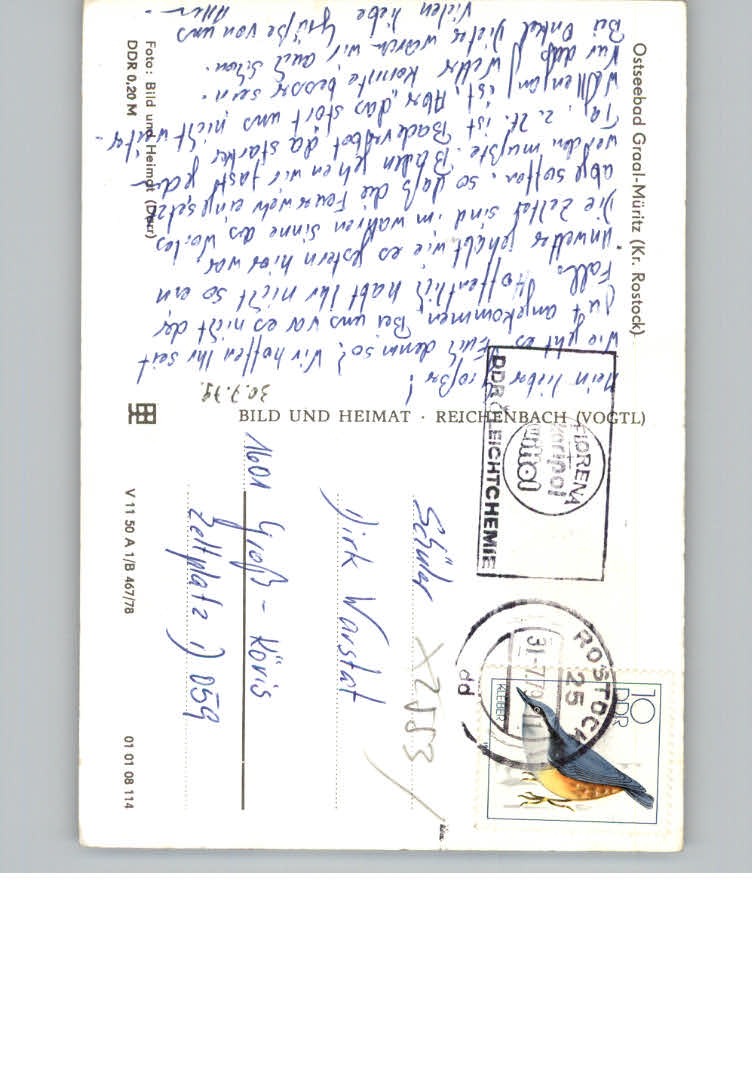 Ostseebad Graal-Müritz (Kr. Rostock)
30.7.79.
Mein lieber Großer!
Wie geht es Euch denn so? Wir hoffen Ihr seit
gut angekommen. Bei uns war es nicht der
Fall. Hoffentlich habt Ihr nicht so ein
Unwetter gehabt wie es gestern hier war
Die Zelte sind im wahren Sinne des Wortes
abgesoffen, so daß die Feuerwehr eingesetzt
werden mußte. Baden gehen wir fast jeden
Tag, z. Zt. ist Badeverbot da starker
Wellengang ist, Aber das stört uns nicht weiter.
Nur das Wetter könnte besser sein.
Bei Onkel Dieter waren wir auch schon.
Vielen liebe Grüße von uns
Allen
Foto: Bild und Heimat (Darr)
DDR 0,20 M
BILD UND HEIMAT · REICHENBACH (VOGTL)
V 11 50 A 1/B 467/78
01 01 08 114
DDR LEICHTCHEMIE
FLORENA
ROSTOCK
25
31.-7.79
dd
10
DDR
KLEIBER
X2553
Schüler
Dirk Warstat
1601 Groß-Köris
Zeltplatz D059